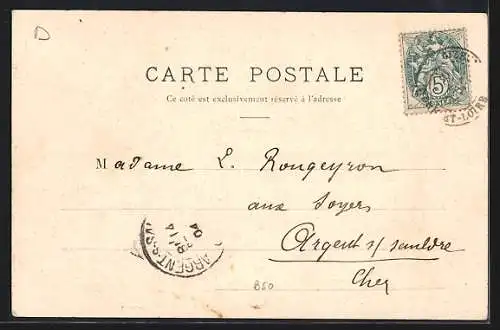 D
CARTE POSTALE
Ce coté est exclusivement réservé à l'adresse
5
ET-LOIRE
Madame L. Rougeyron
aux Foyers
Argent s/ sauldre
Cher
ARGENT-S-SAS
14
04
B50